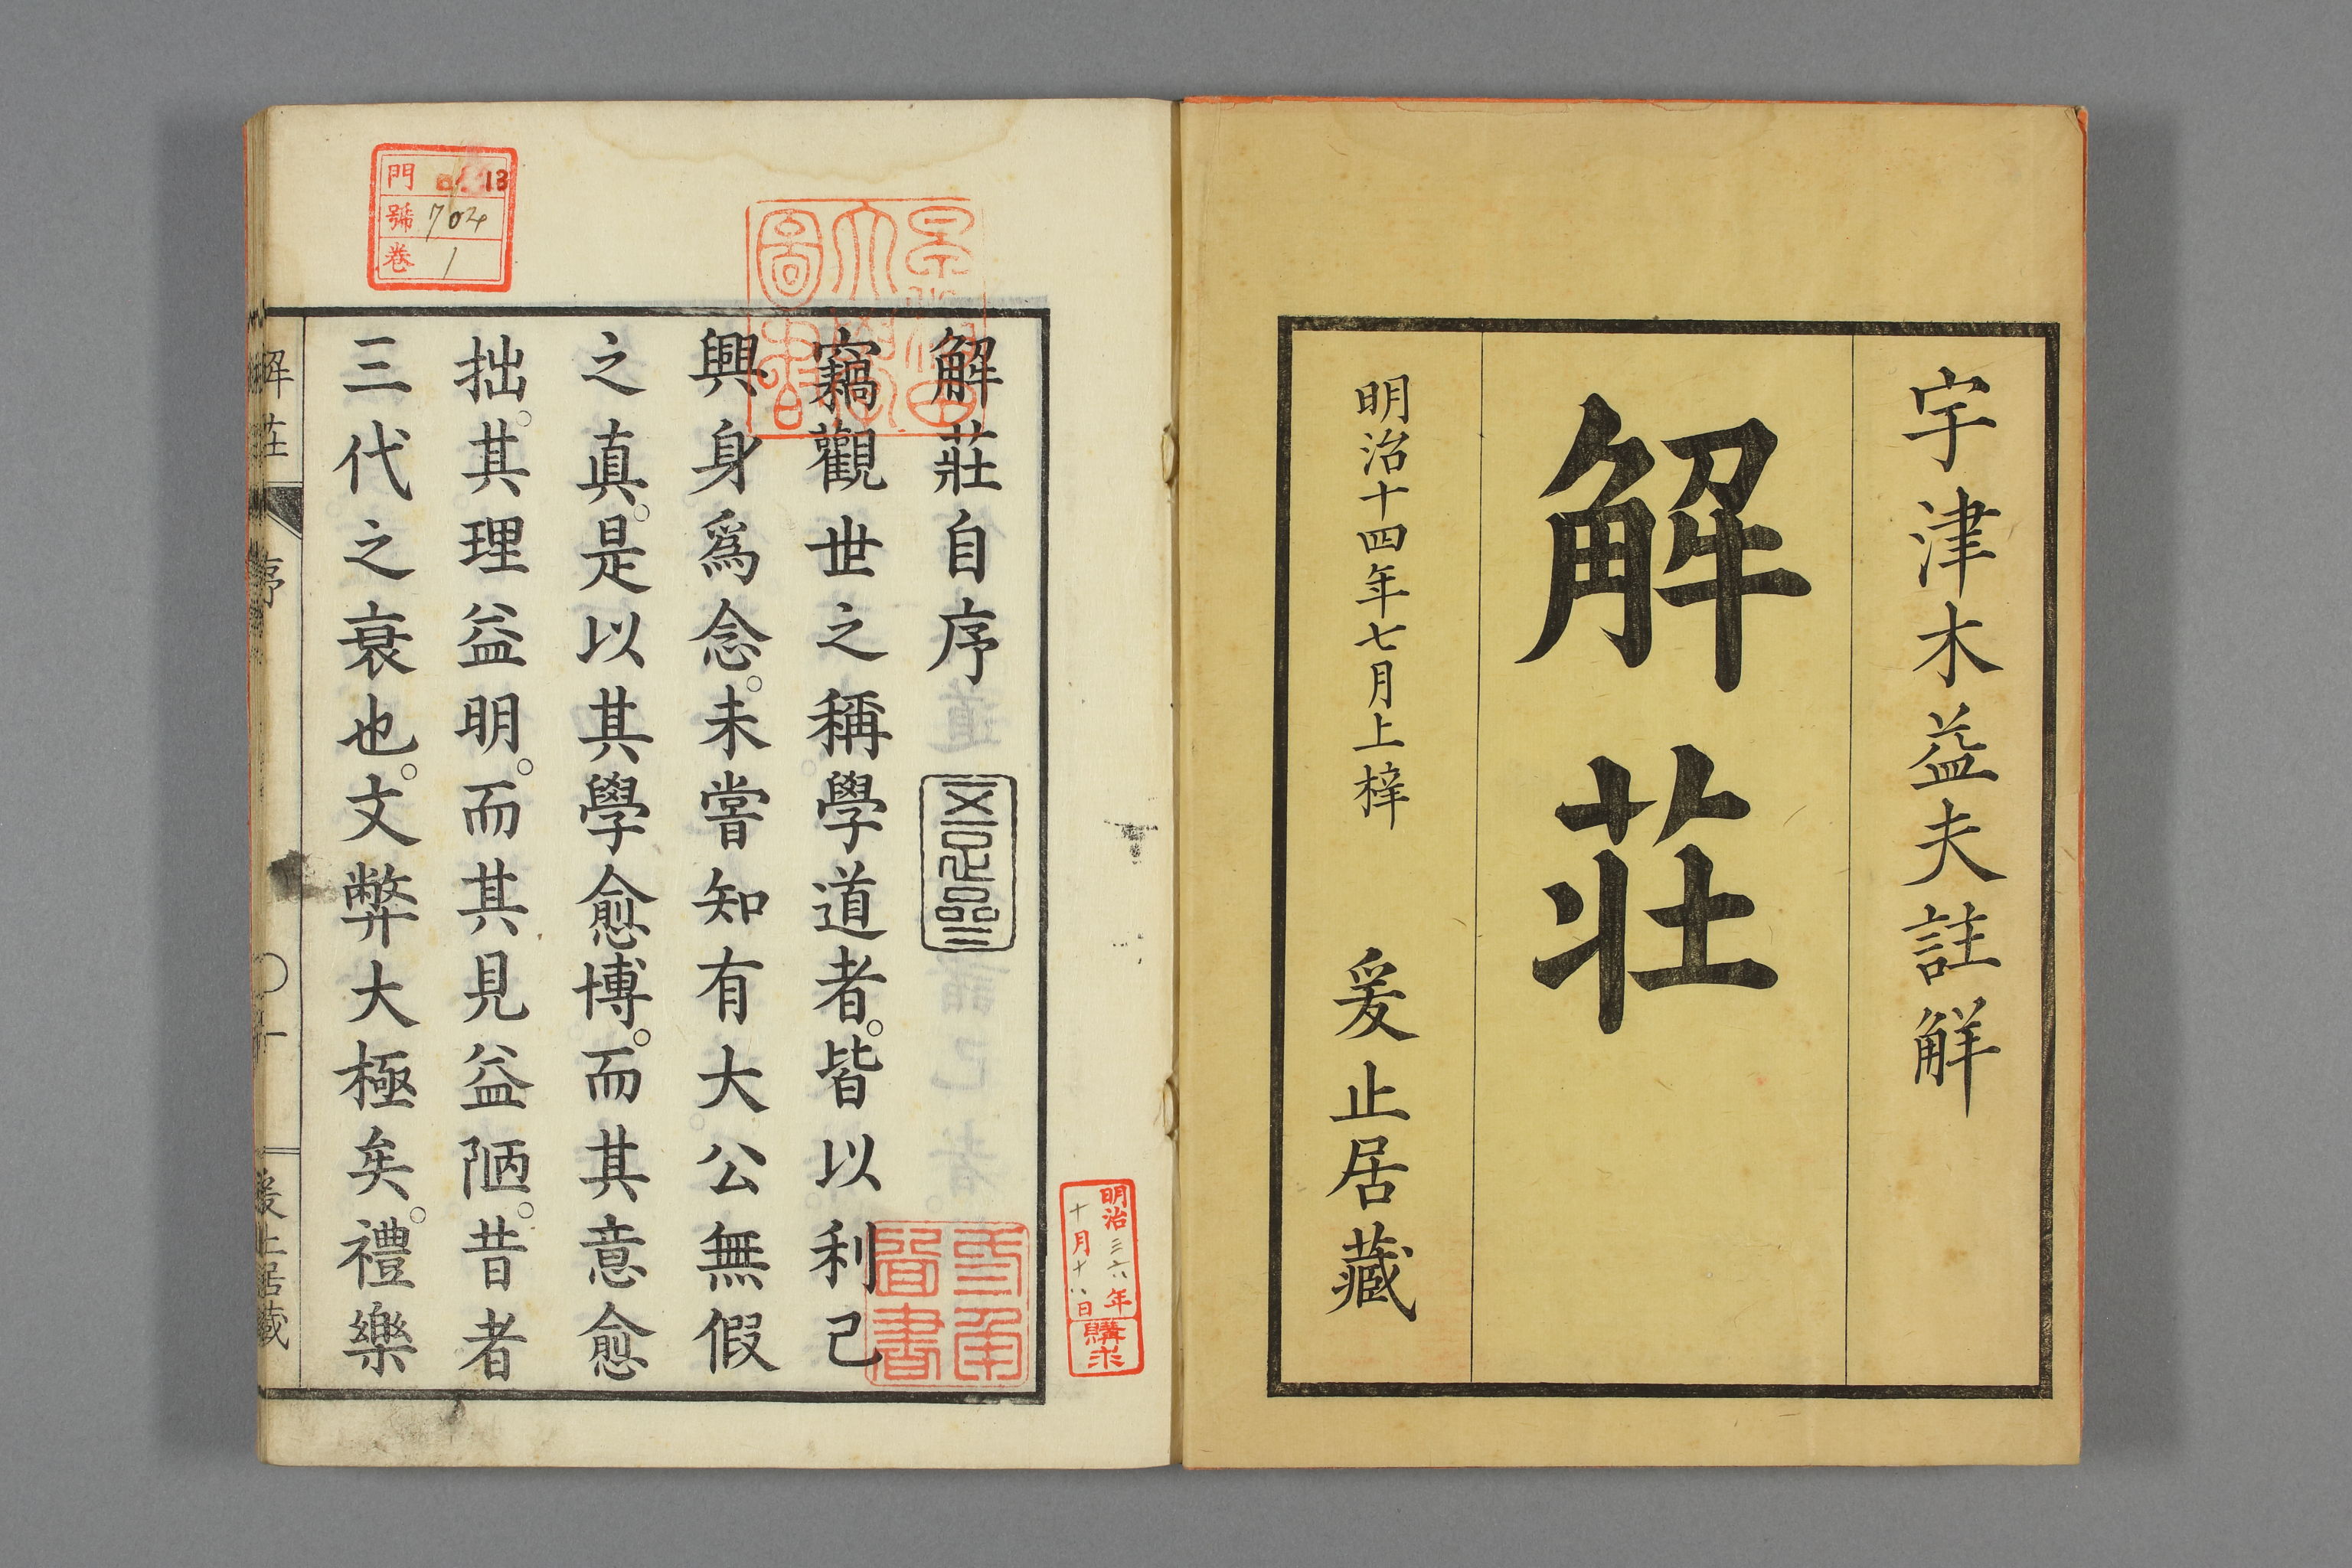 宇津木益夫註解
解莊
明治十四年七月上梓 爰止居藏
明治三六年
十月十八日
購求
解莊自序
竊觀世之稱學道者。皆以利己
興身爲念。未嘗知有大公無假
之真。是以其學愈博。而其意愈
拙。其理益明。而其見益陋。昔者
三代之衰也。文弊大極矣。禮樂
門 13
號 704
卷 1
解莊 序
爰止居藏